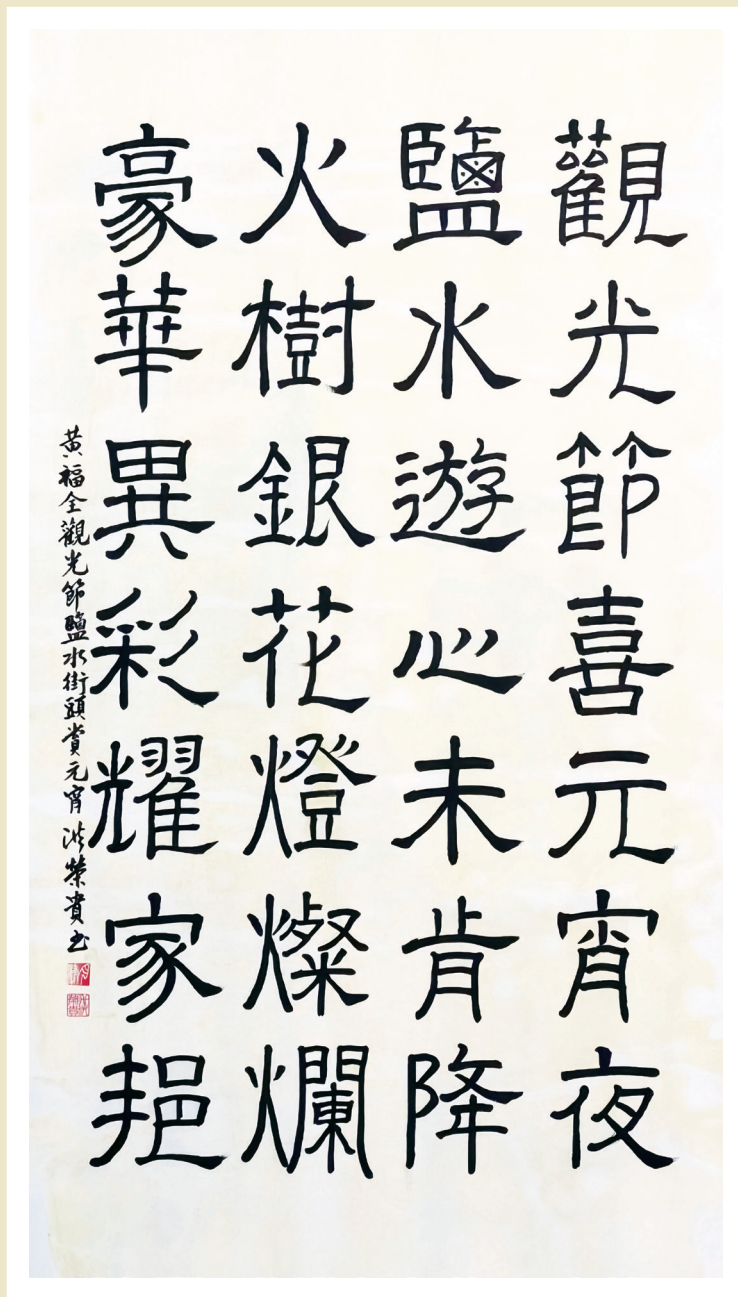 觀光節喜元宵夜
鹽水遊心未肯降
火樹銀花燈燦爛
豪華異彩耀家邦
黃福全觀光節鹽水街頭賞元宵 洪榮貴书